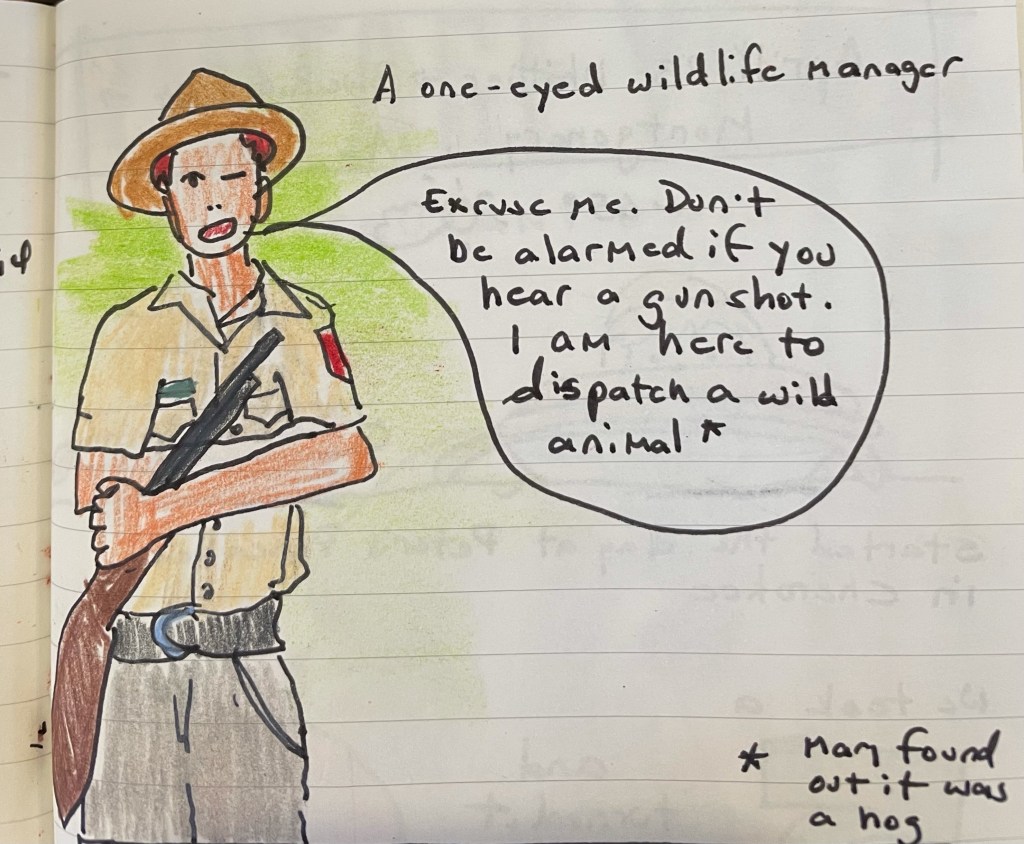 A one-eyed wildlife manager
Excuse me. Don't
be alarmed if you
hear a gun shot.
I am here to
dispatch a wild
animal *
* Mary found
out it was
a hog